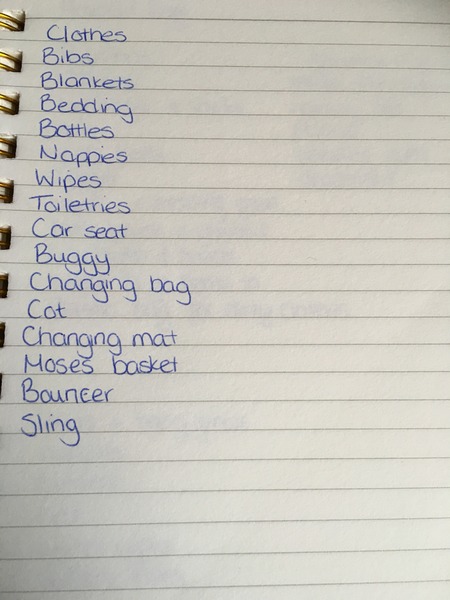 Clothes
Bibs
Blankets
Bedding
Bottles
Nappies
Wipes
Toiletries
Car seat
Buggy
Changing bag
Cot
Changing mat
Moses basket
Bouncer
Sling